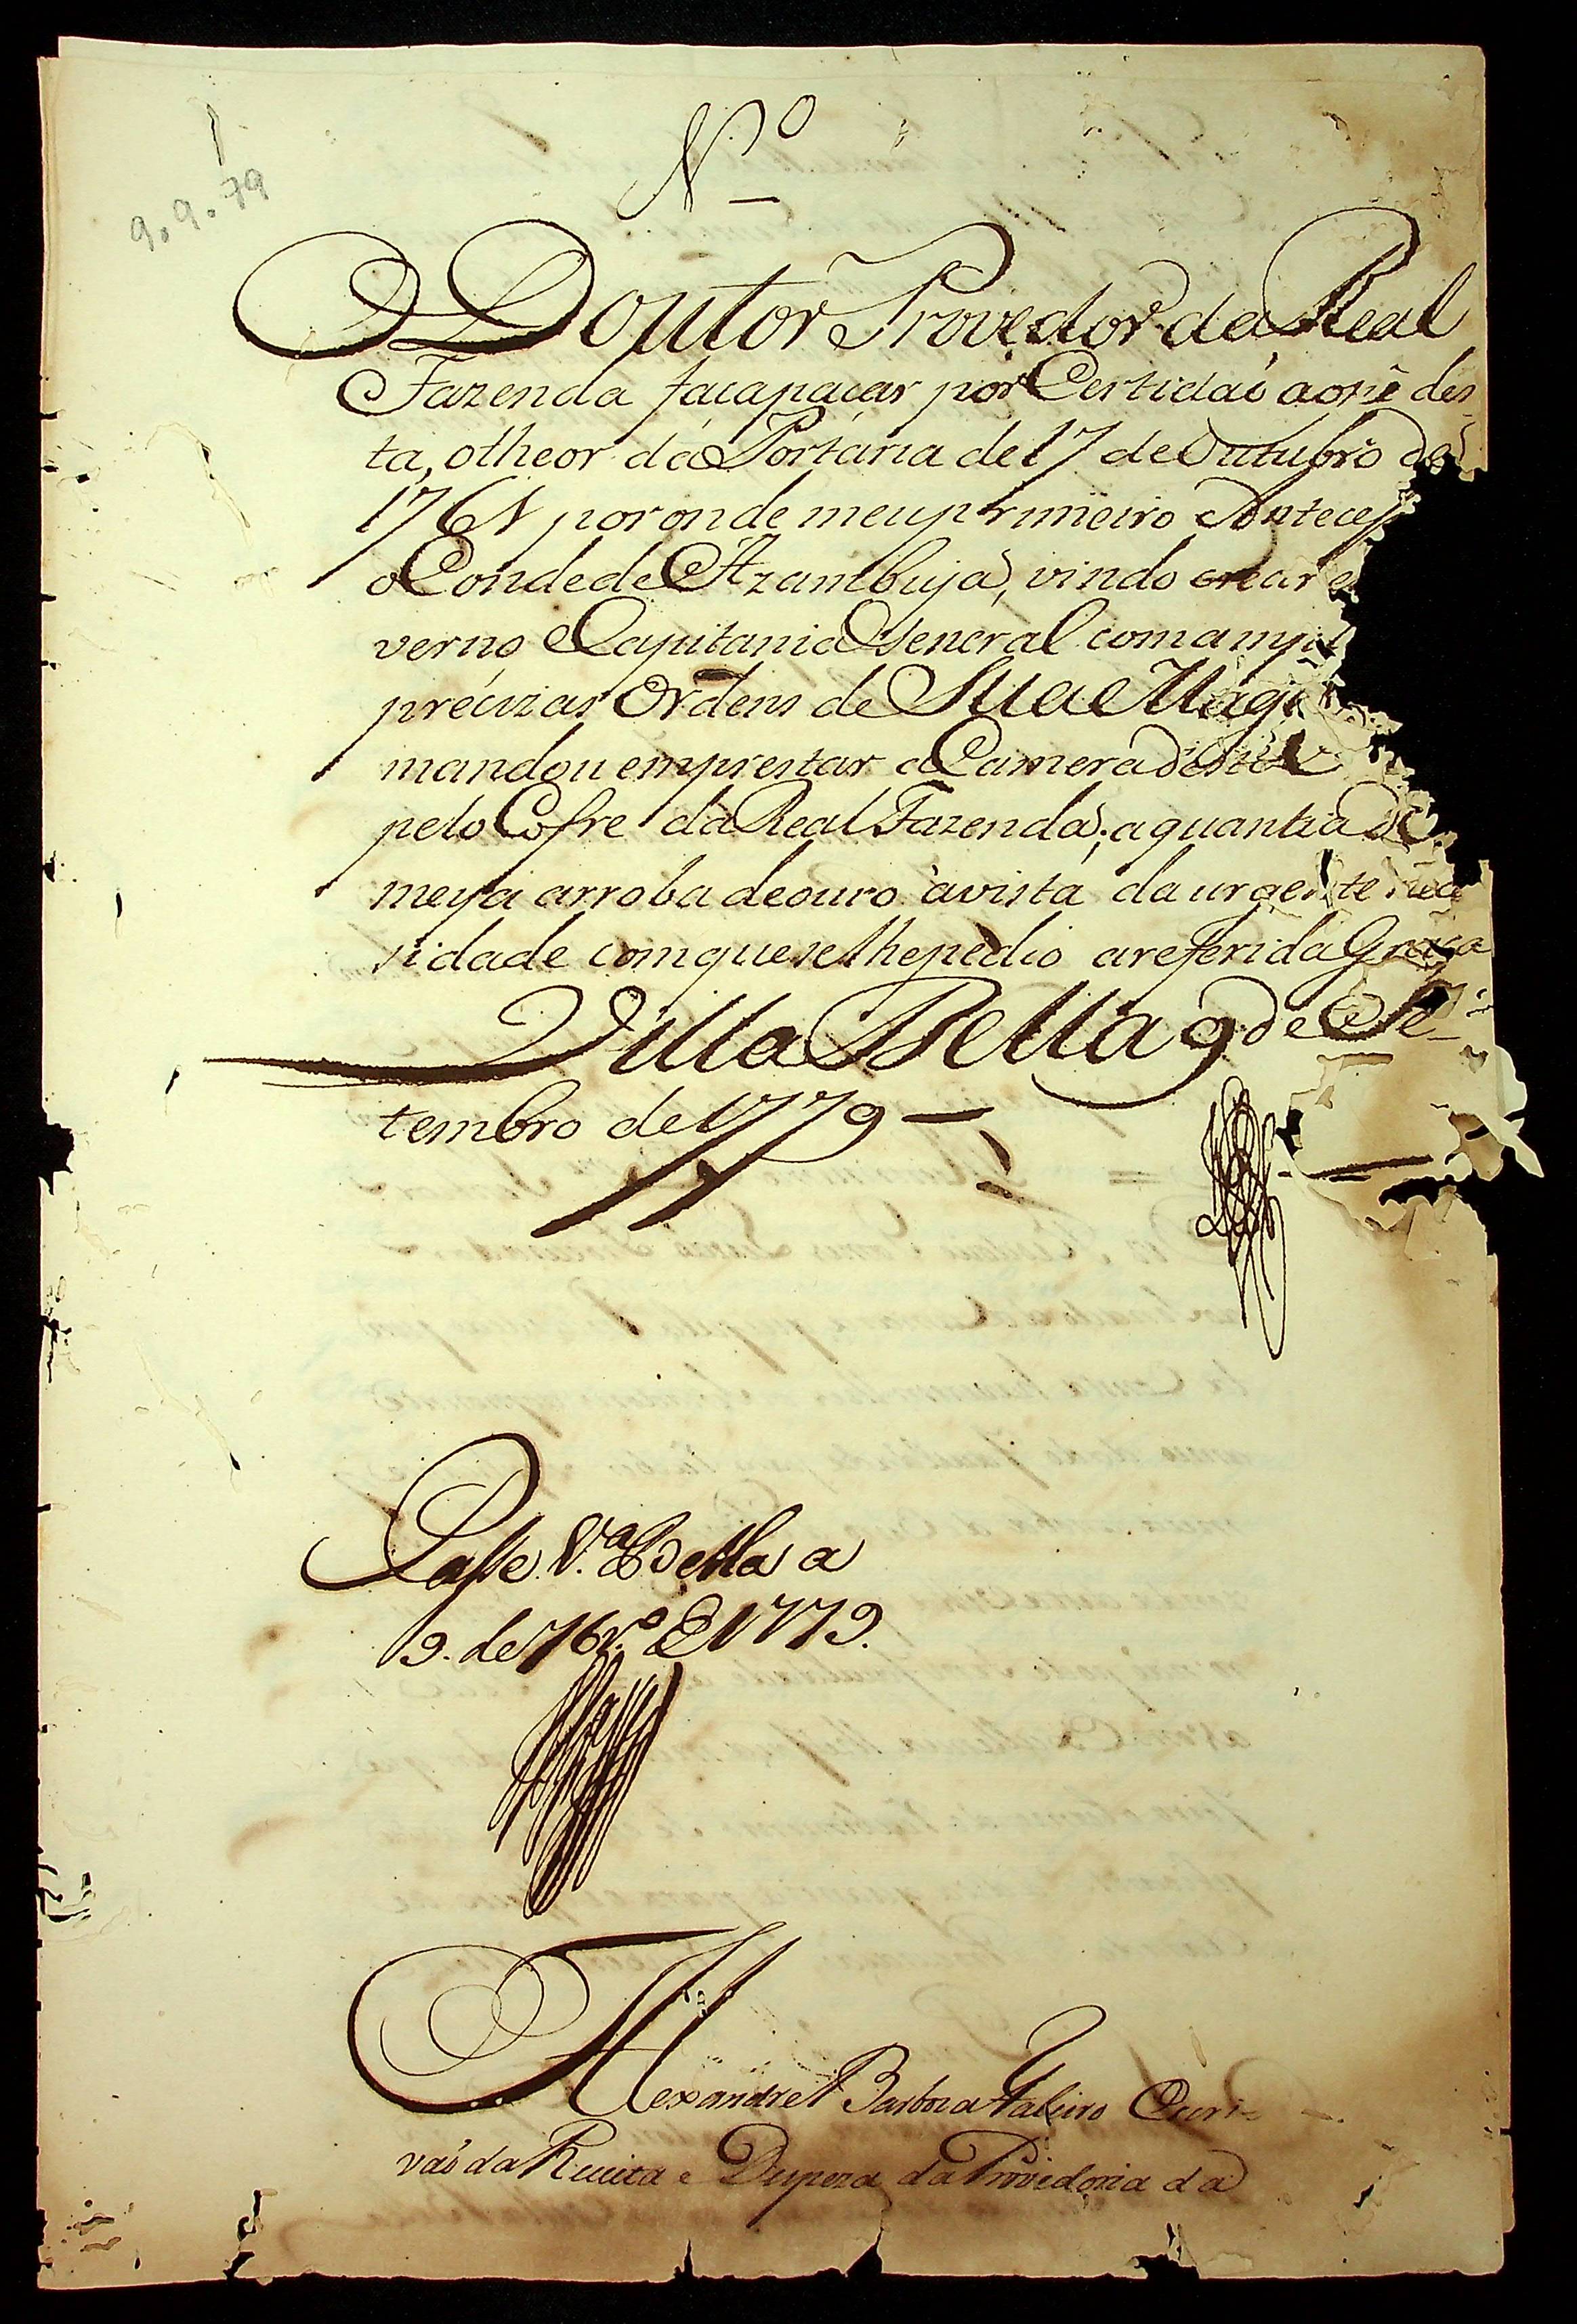 9.9.79
Nº
O Doutor Provedor da Real
Fazenda faça paçar por Certidaõ ao pê des-
ta, o theor da Portaria de 17 de Outubro de
1761 por onde meu primeiro Antecess
o Conde de Azambuja, vindo crear e
verno e Capitania General com amp
precizas Ordens de Sua Mag
mandou emprestar a Camera desta V
pelo Cofre da Real Fazenda; a quantia de
meya arroba de ouro á vista da urgente nece
sidade com que se lhe pedio a referida Graça
Villa Bella 9 de Se-
tembro de 1779
Passe V.ª Bella a
9. de 7br.º D 1779.
Alexandre Barboza Escri-
vaõ da Receita e Despeza da Provedoria da